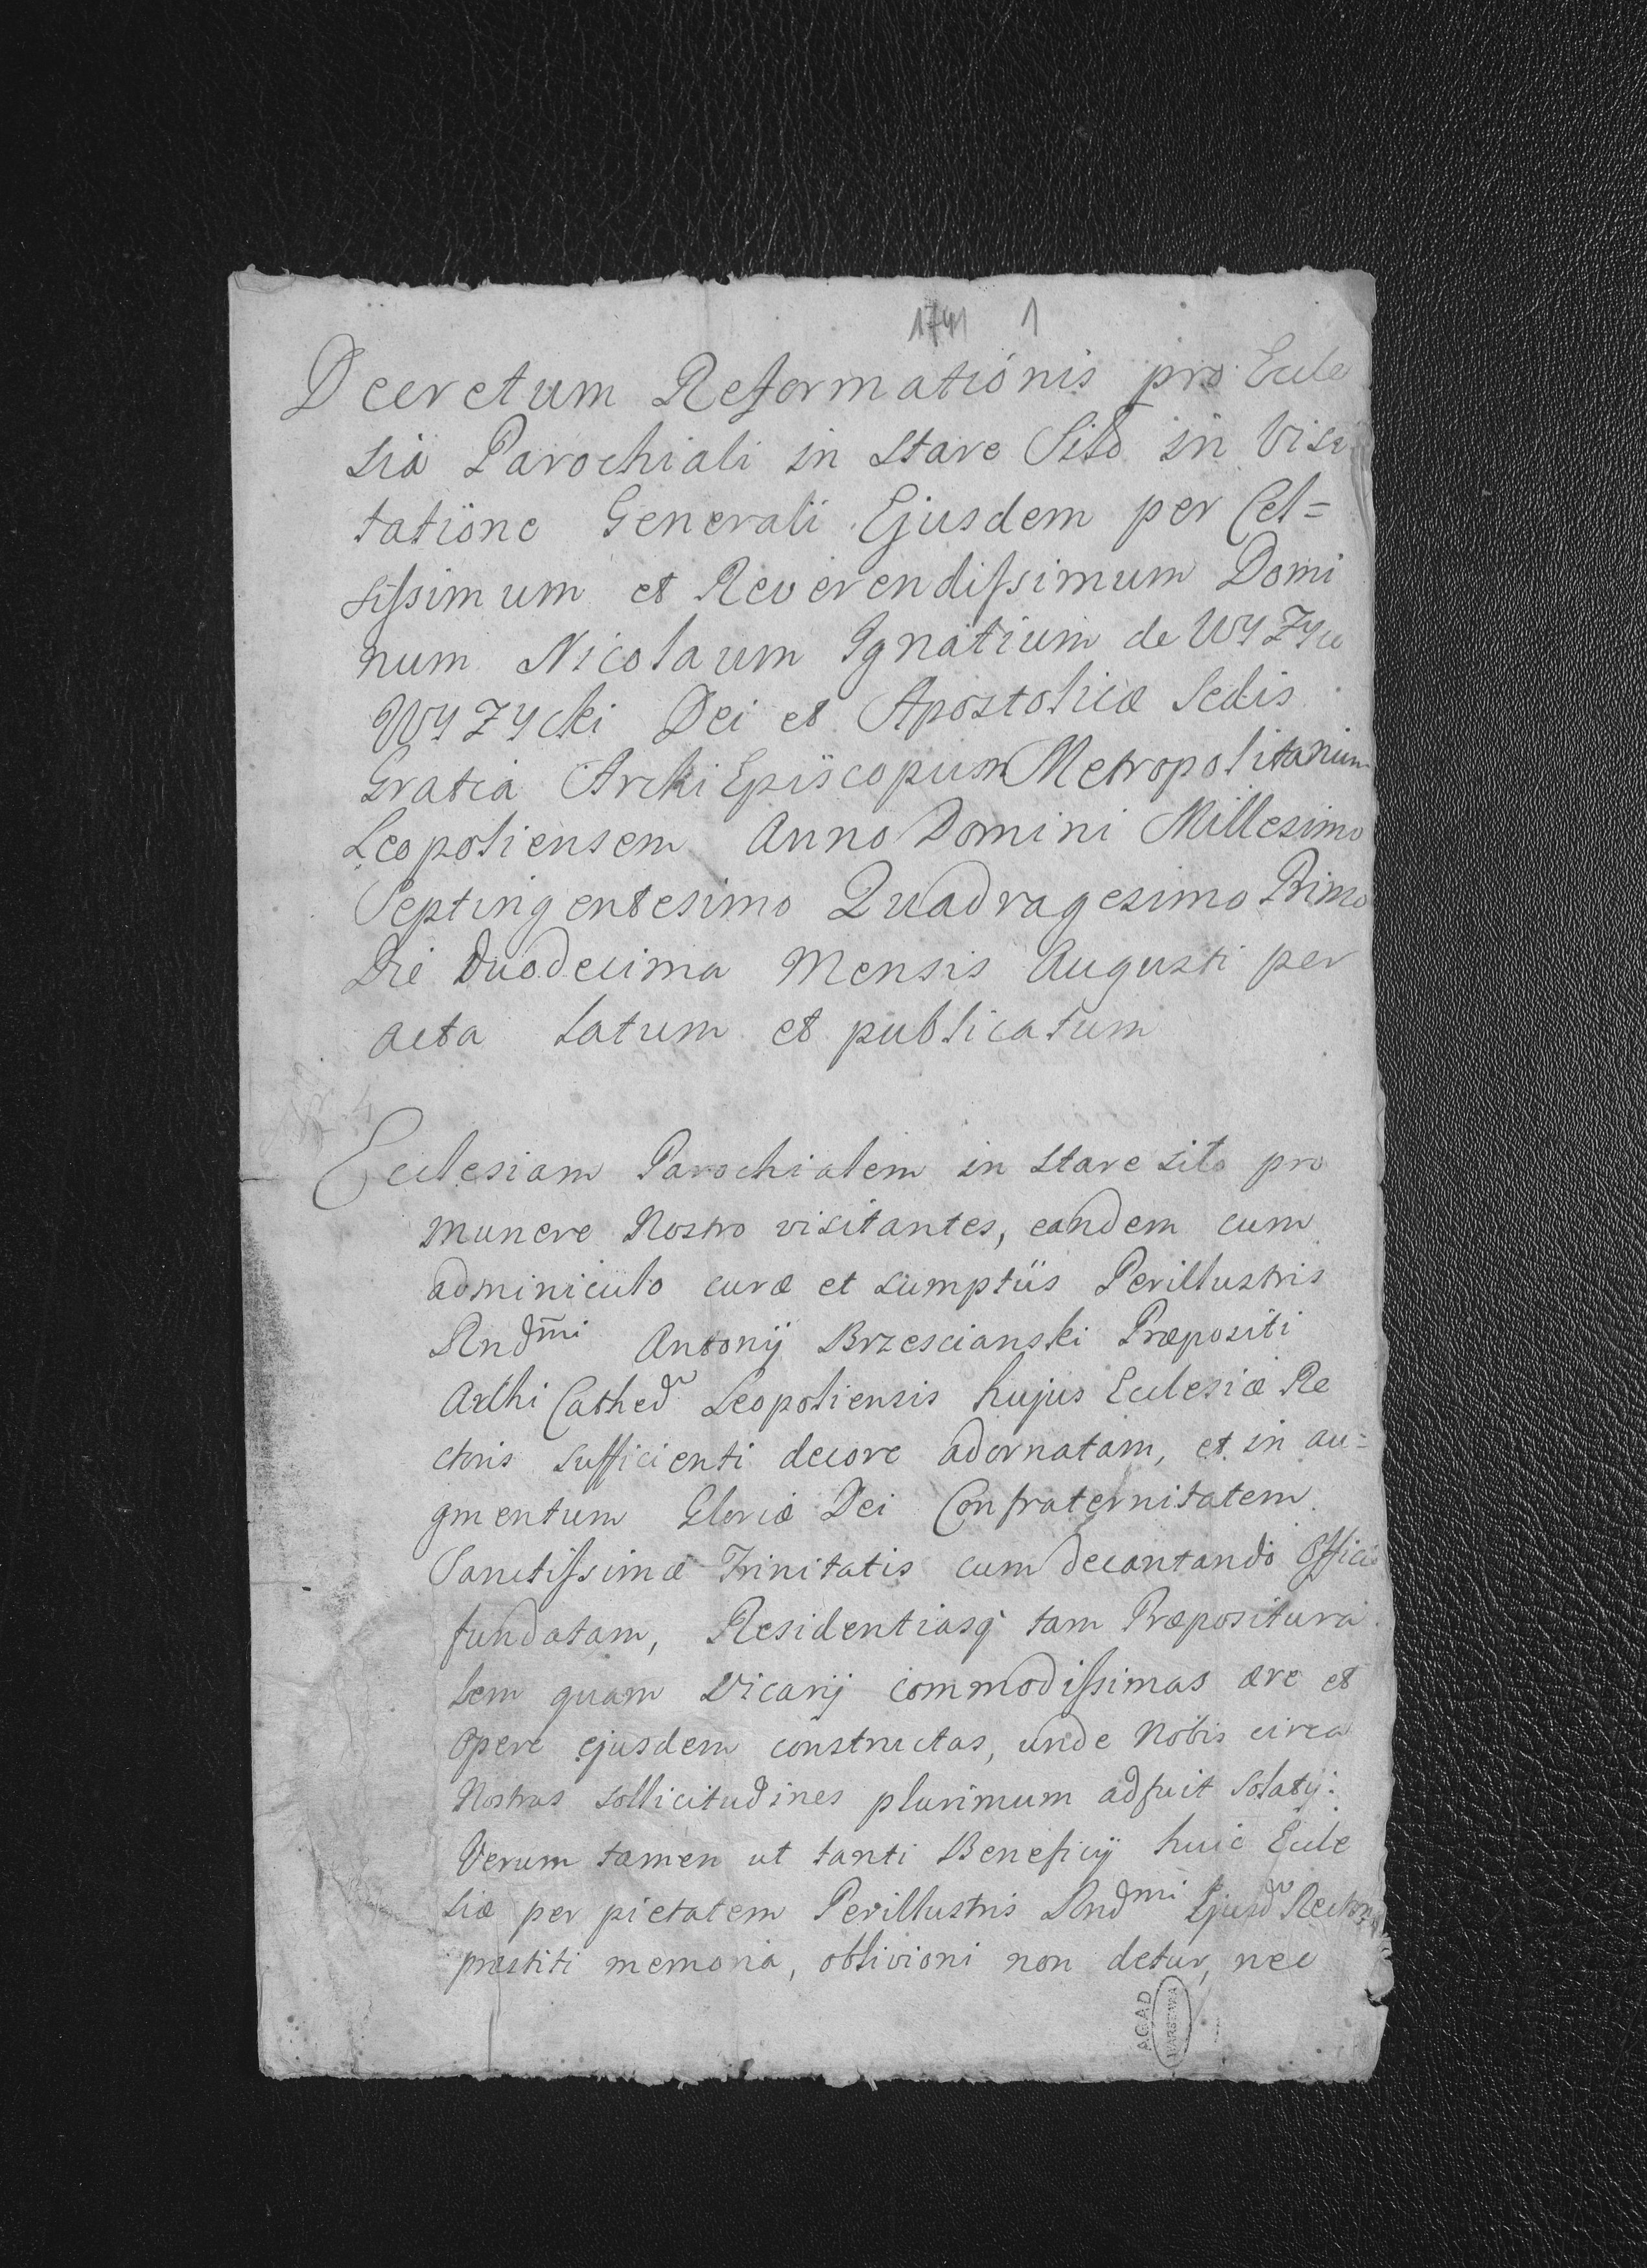 1741 1
Decretum Reformationis pro Eccle
sia Parochiali in Stare Siło in Visi
tatione Generali Ejusdem per Cel=
sissimum et Reverendissimum Domi
num Nicolaum Ignatium de Wyzyce
Wyzycki Dei et Apostolicæ Sedis
Gratia Archi Episcopum Metropolitanum
Leopoliensem Anno Domini Millesimo
Septingentesimo Quadragesimo Primo
Die Duodecima Mensis Augusti per
acta Latum et publicatum
Ecclesiam Parochialem in Stare siło pro
munere Nostro visitantes, eandem cum
adminiculo curæ et sumptiis Perillustris
Rndm̄i Antonij Brzescianski Præpositi
Archi Cathed Leopoliensis hujus Ecclesiæ Re
ctoris sufficienti decore adornatam, et in au=
gmentum Gloriæ Dei Confraternitatem
Sanctissimæ Trinitatis cum decantando Officio
fundatam, Residentiasq tam Præpositura
lem quam Vicarij commodissimas ære et
opere ejusdem constructas, unde Nobis circa
Nostras sollicitudines plurimum adfuit solatij:
Verum tamen ut tanti Beneficij huic Eccle
siæ per pietatem Perillustris Rndmi Ejusd Rectoris
præstiti memoria, oblivioni non detur, nec
AGAD
WARSZAWA